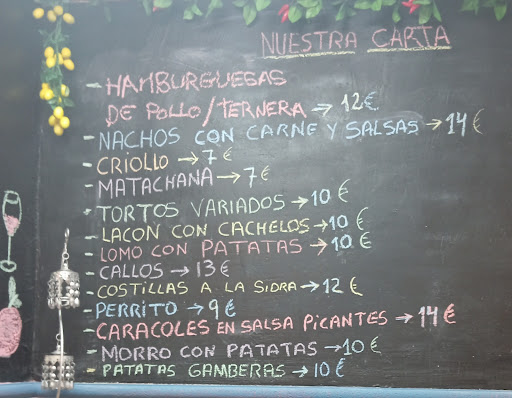 NUESTRA CARTA
- HAMBURGUESAS
DE POLLO/TERNERA → 12€
- NACHOS CON CARNE Y SALSAS → 14€
- CRIOLLO → 7€
- MATACHANA → 7€
- TORTOS VARIADOS → 10€
- LACON CON CACHELOS → 10€
- LOMO CON PATATAS → 10€
- CALLOS → 13€
- COSTILLAS A LA SIDRA → 12€
- PERRITO → 9€
- CARACOLES EN SALSA PICANTES → 14€
- MORRO CON PATATAS → 10€
- PATATAS GAMBERAS → 10€